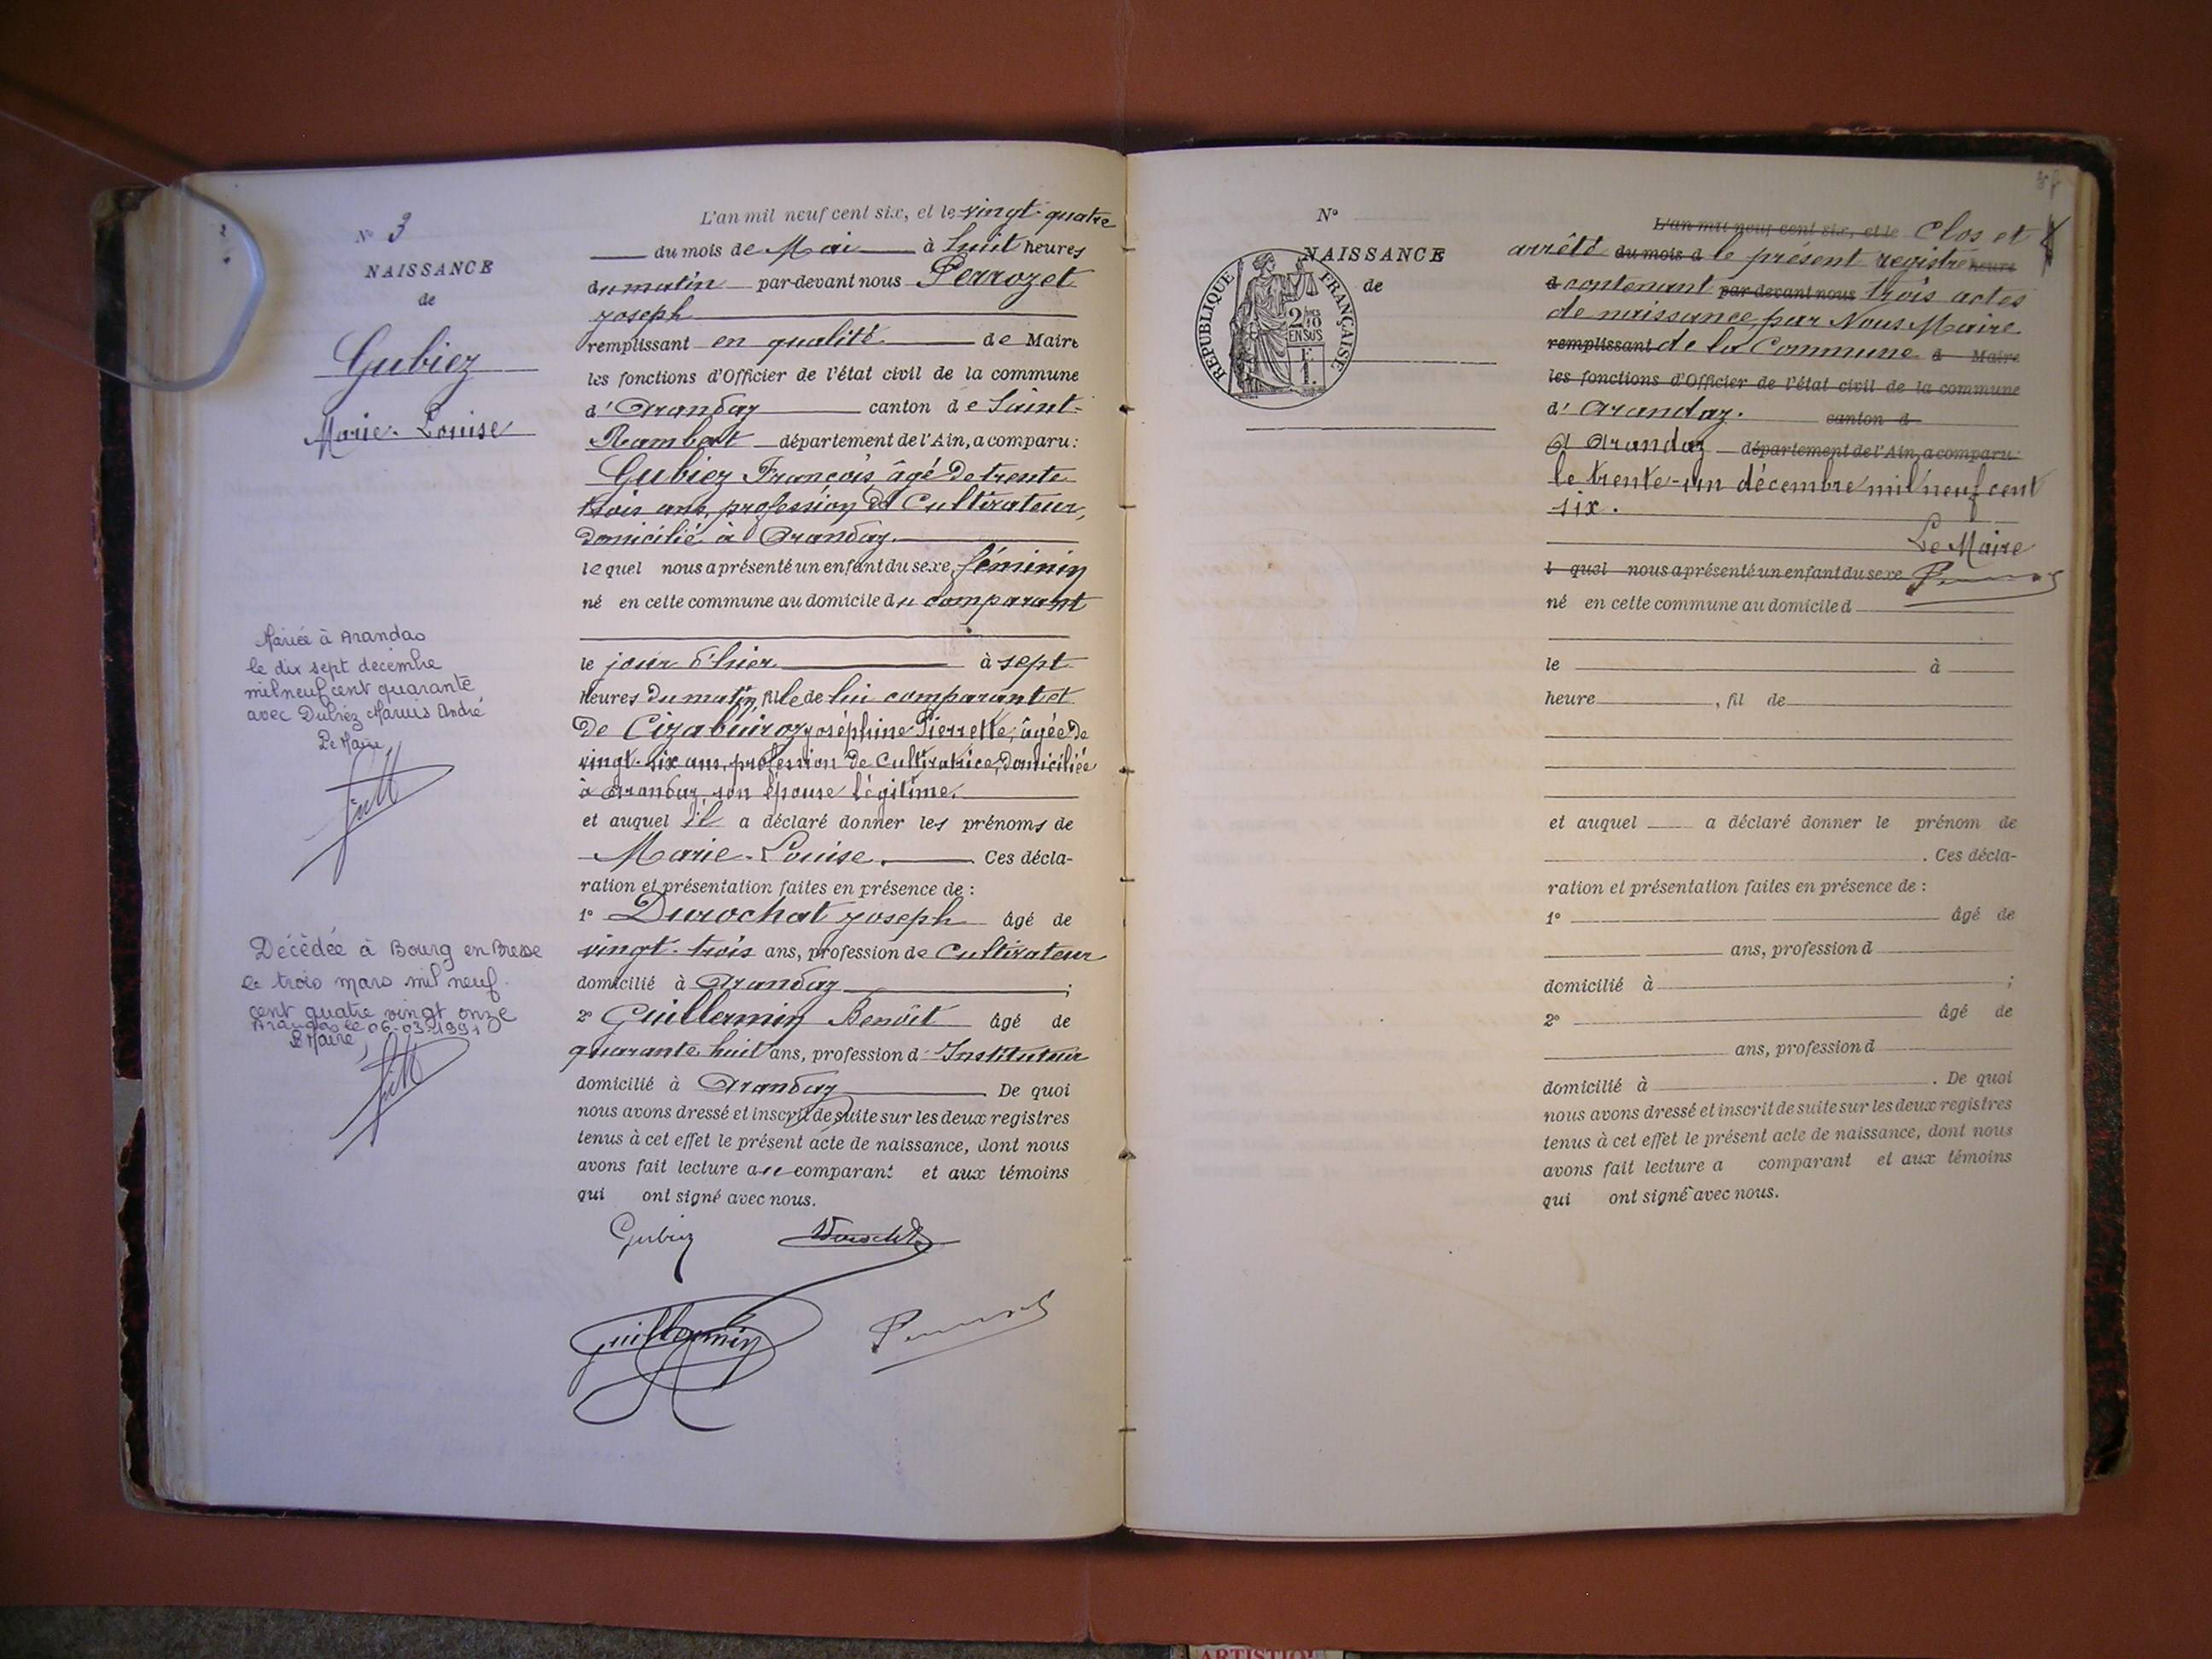 N° 3
NAISSANCE
de
Gubiez
Marie-Louise
Mariée à Arandas
le dix sept decembre
mil neuf cent quarante
avec André
Le Maire
Décédée à Bourg en Bresse
le trois mars mil neuf
cent quatre vingt onze
Arandas le 06-03-1991
Le Maire,
L'an mil neuf cent six, et le vingt-quatre
du mois de Mai à huit heures
du matin par-devant nous Perrozet
Joseph
remplissant en qualité de Maire
les fonctions d'Officier de l'état civil de la commune
d'Arandaz canton de Saint-
Rambert département de l'Ain, a comparu :
Gubiez François âgé de trente
trois ans, profession de Cultivateur,
domicilié à Arandaz.
lequel nous a présenté un enfant du sexe féminin
né en cette commune au domicile du comparant
le jour d'hier à sept
heures du matin, fille de lui comparant et
de Joséphine Pierrette, âgée de
vingt-six ans, profession de Cultivatrice, domiciliée
à Arandaz, son épouse légitime.
et auquel il a déclaré donner les prénoms de
Marie-Louise. Ces décla-
ration et présentation faites en présence de :
1° Durochat Joseph âgé de
vingt-trois ans, profession de Cultivateur
domicilié à Arandaz ;
2° Guillermin Benoit âgé de
quarante huit ans, profession d'Instituteur
domicilié à Arandaz. De quoi
nous avons dressé et inscrit de suite sur les deux registres
tenus à cet effet le présent acte de naissance, dont nous
avons fait lecture au comparant et aux témoins
qui ont signé avec nous.
Gubiez
Guillermin
N°
NAISSANCE
de
RÉPUBLIQUE FRANÇAISE
2/10
EN SUS
L'an mil neuf cent six, et le Clos et
arrêté du mois d le présent registre heure
d contenant par-devant nous trois actes
de naissance par Nous Maire
remplissant de la Commune d Maire
les fonctions d'Officier de l'état civil de la commune
d'Arandaz. canton d
A Arandaz département de l'Ain, a comparu :
le trente-un décembre mil neuf cent
six.
Le Maire
l quel nous a présenté un enfant du sexe
né en cette commune au domicile d
le à
heure , fil de
et auquel a déclaré donner le prénom de
. Ces décla-
ration et présentation faites en présence de :
1° âgé de
ans, profession d
domicilié à ;
2° âgé de
ans, profession d
domicilié à . De quoi
nous avons dressé et inscrit de suite sur les deux registres
tenus à cet effet le présent acte de naissance, dont nous
avons fait lecture a comparant et aux témoins
qui ont signé avec nous.